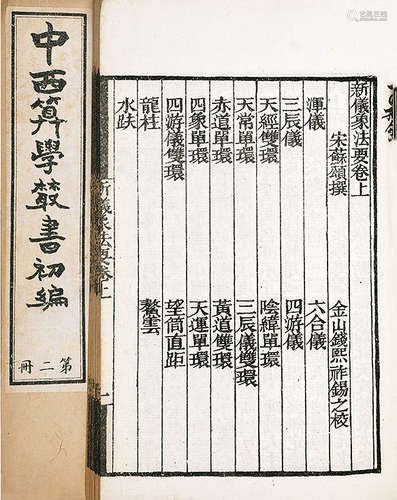 中西算學叢書初編
第二冊
新儀象法要卷上
宋蘇頌撰 金山錢熙祚錫之校
渾儀 六合儀
三辰儀 四游儀
天經雙環 陰緯單環
天常單環 三辰儀雙環
赤道單環 黃道雙環
四象單環 天運單環
四游儀雙環 望筒直距
龍柱 鰲雲
水趺
新儀象法要卷上
一